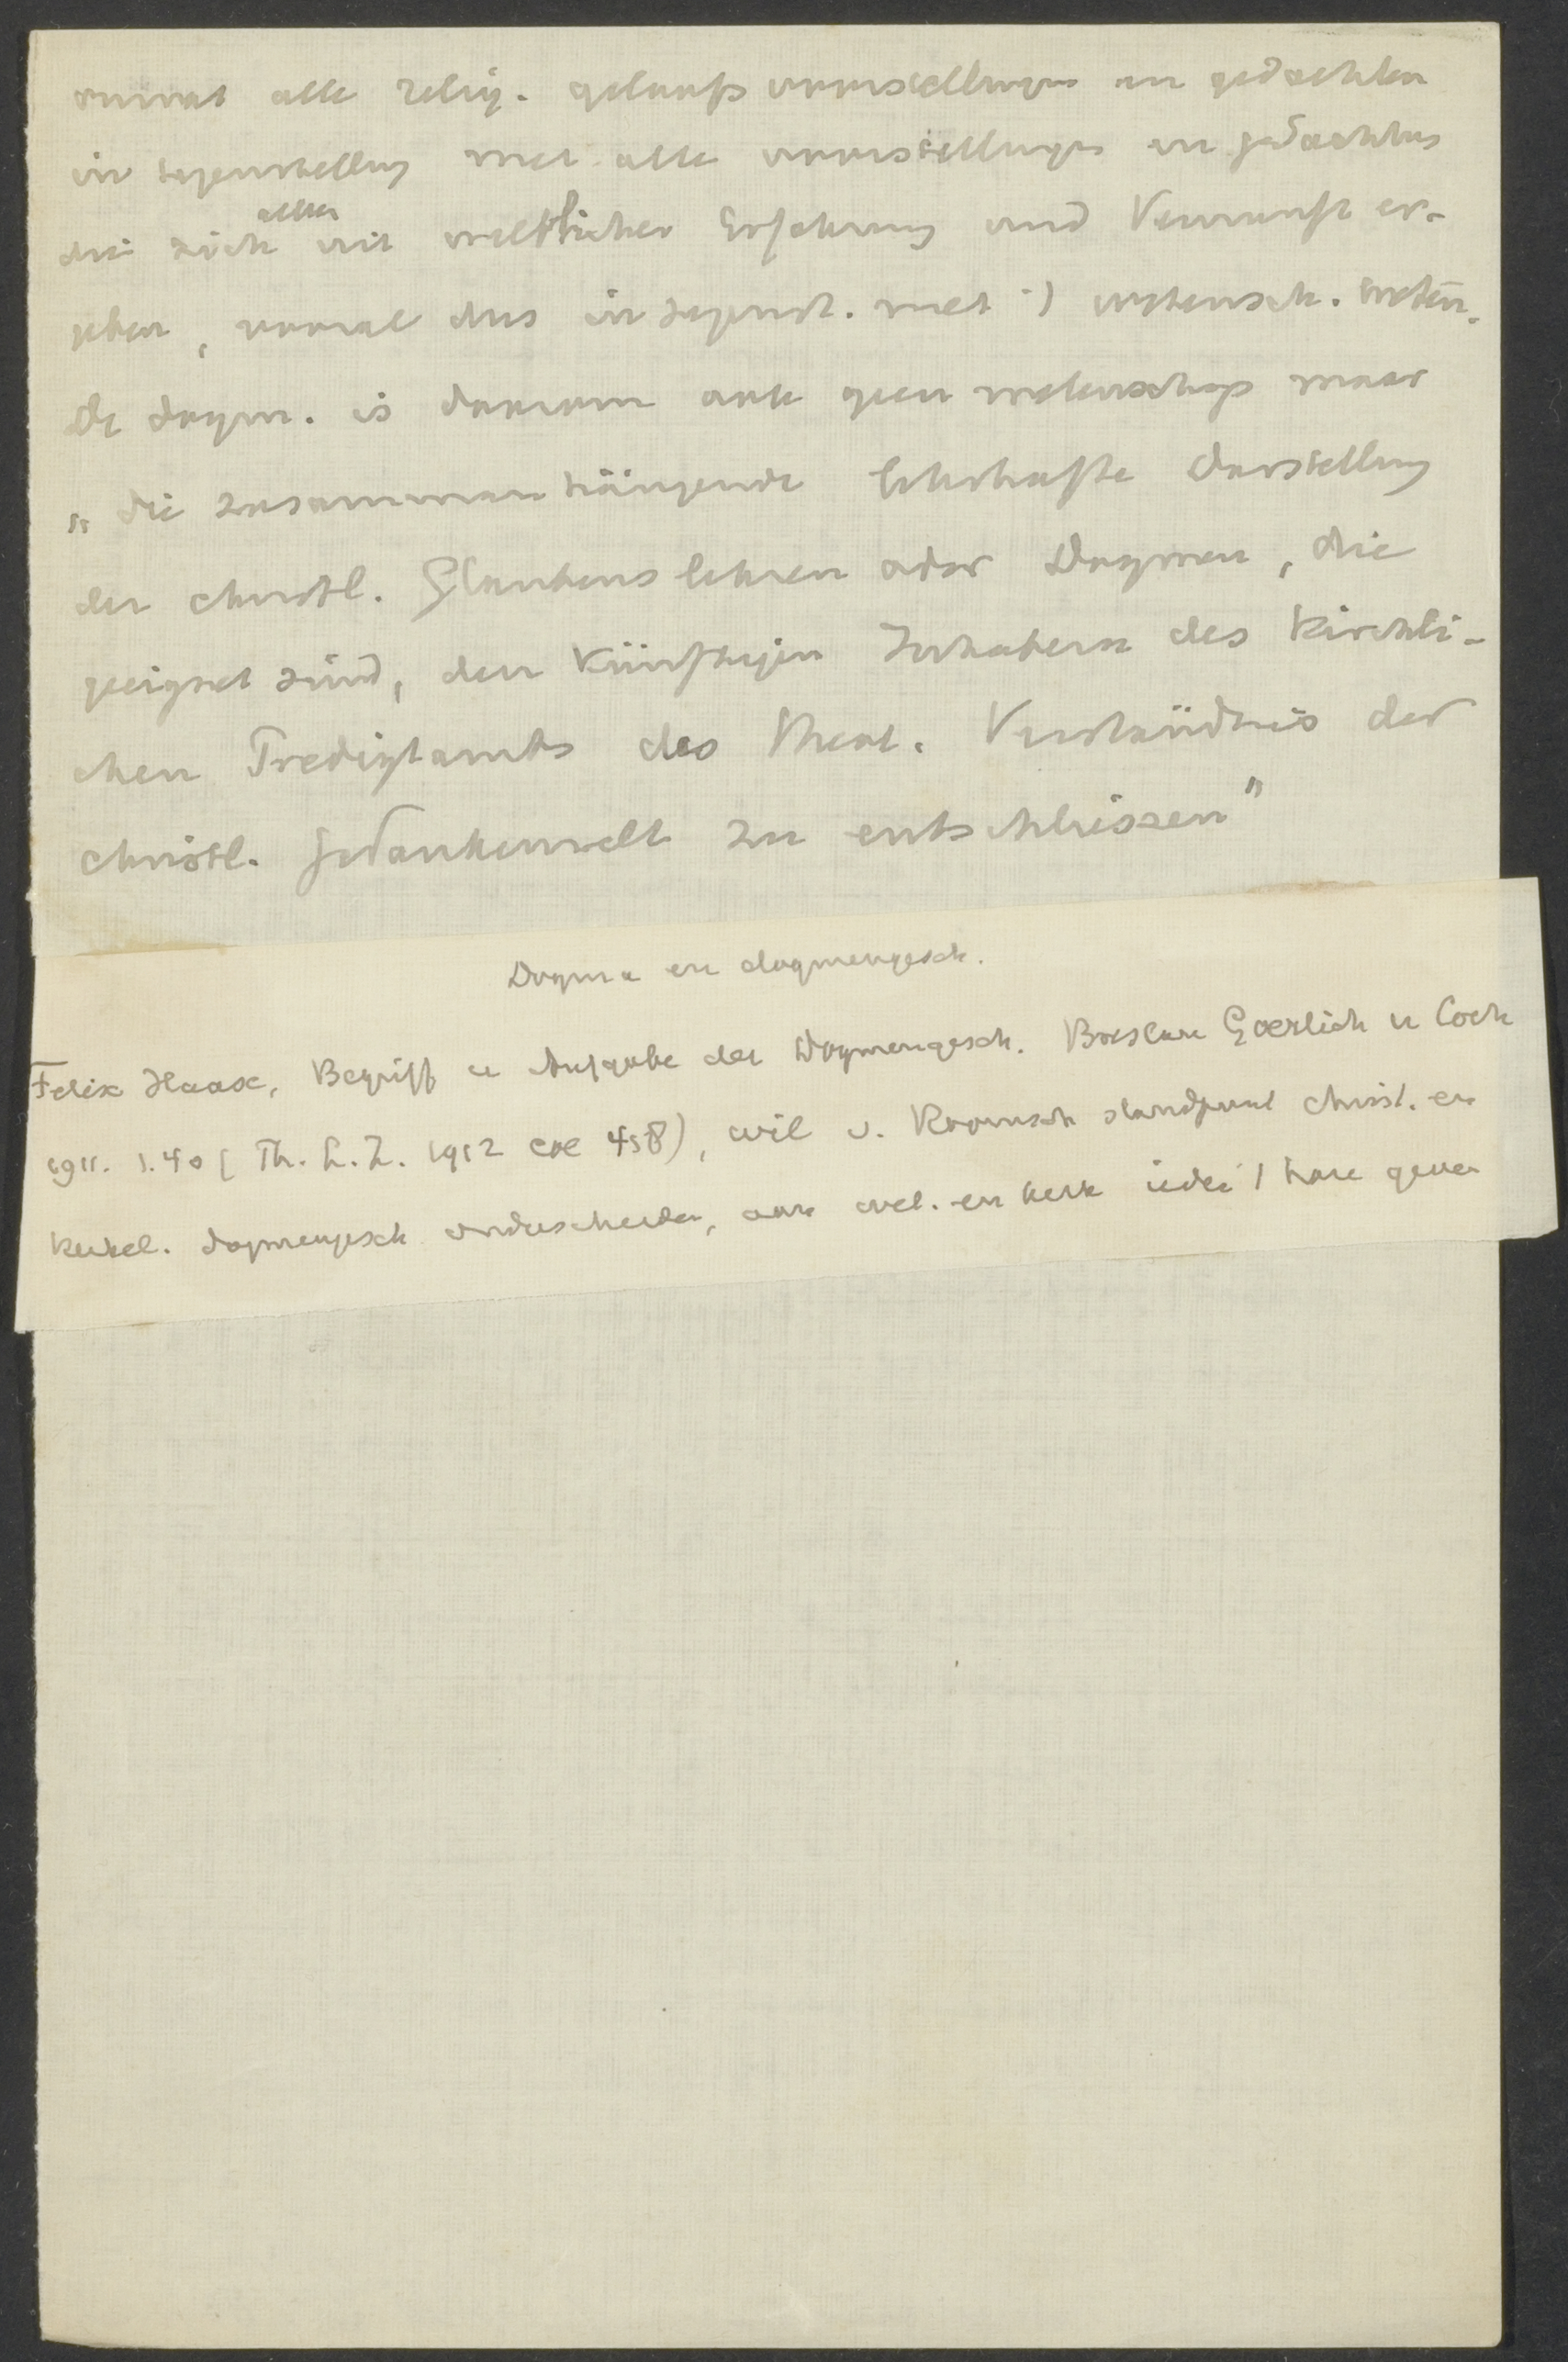 omvat alle relig. geloofsvoorstellingen en gedachten
in tegenstelling met alle voorstellingen en gedachten
die sich allen mit weltlicher Erfahrung und Vernunft er-
geben, vooral dus in tegenst. met :) wetensch. weten.
De dogm. is daarom ook geen wetenschap maar
"die zusammenhängende lehrhafte Darstellung
der christl. Glaubenslehren oder Dogmen, die
geeignet sind, den künftigen Inhabern des kirchli-
chen Predigtamts das theol. Verständnis der
christl. Gedankenwelt zu entschliessen"
Dogma en dogmengesch.
Felix Haase, Begriff u Aufgabe der Dogmengesch. Breslau Goerlich u Coch
1911. S. 40 [Th. L. Z. 1912 col 458), wil v. Roomsch standpunt christ. en
kerkel. dogmengesch onderscheiden, aan wet. en kerk ieder / hare geven